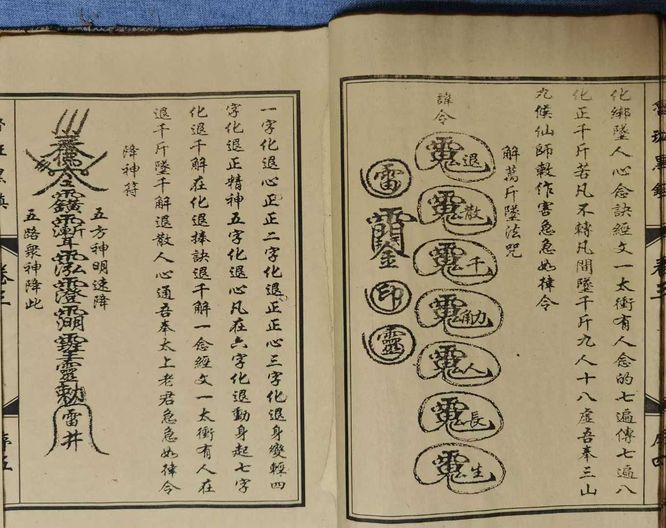 化綁墜人心念訣經文一太衝有人念的七遍傳七遍八
化正千斤若凡不轉凡間墜千斤九人十八虛吾奉三山
九候仙師敕作害急急如律令
解萬斤墜法咒
諱令
退
散
千
人
長
生
雷
印
靈
一字化退心正正二字化退正正心三字化退身變輕四
字化退正精神五字化退心凡在六字化退動身起七字
化退千解在化退捧訣退千解一念經文一太衝有人在
退千斤墜千解退散人心通吾奉太上老君急急如律令
降神符
五方神明速降
雷井
五路衆神降此
卷三